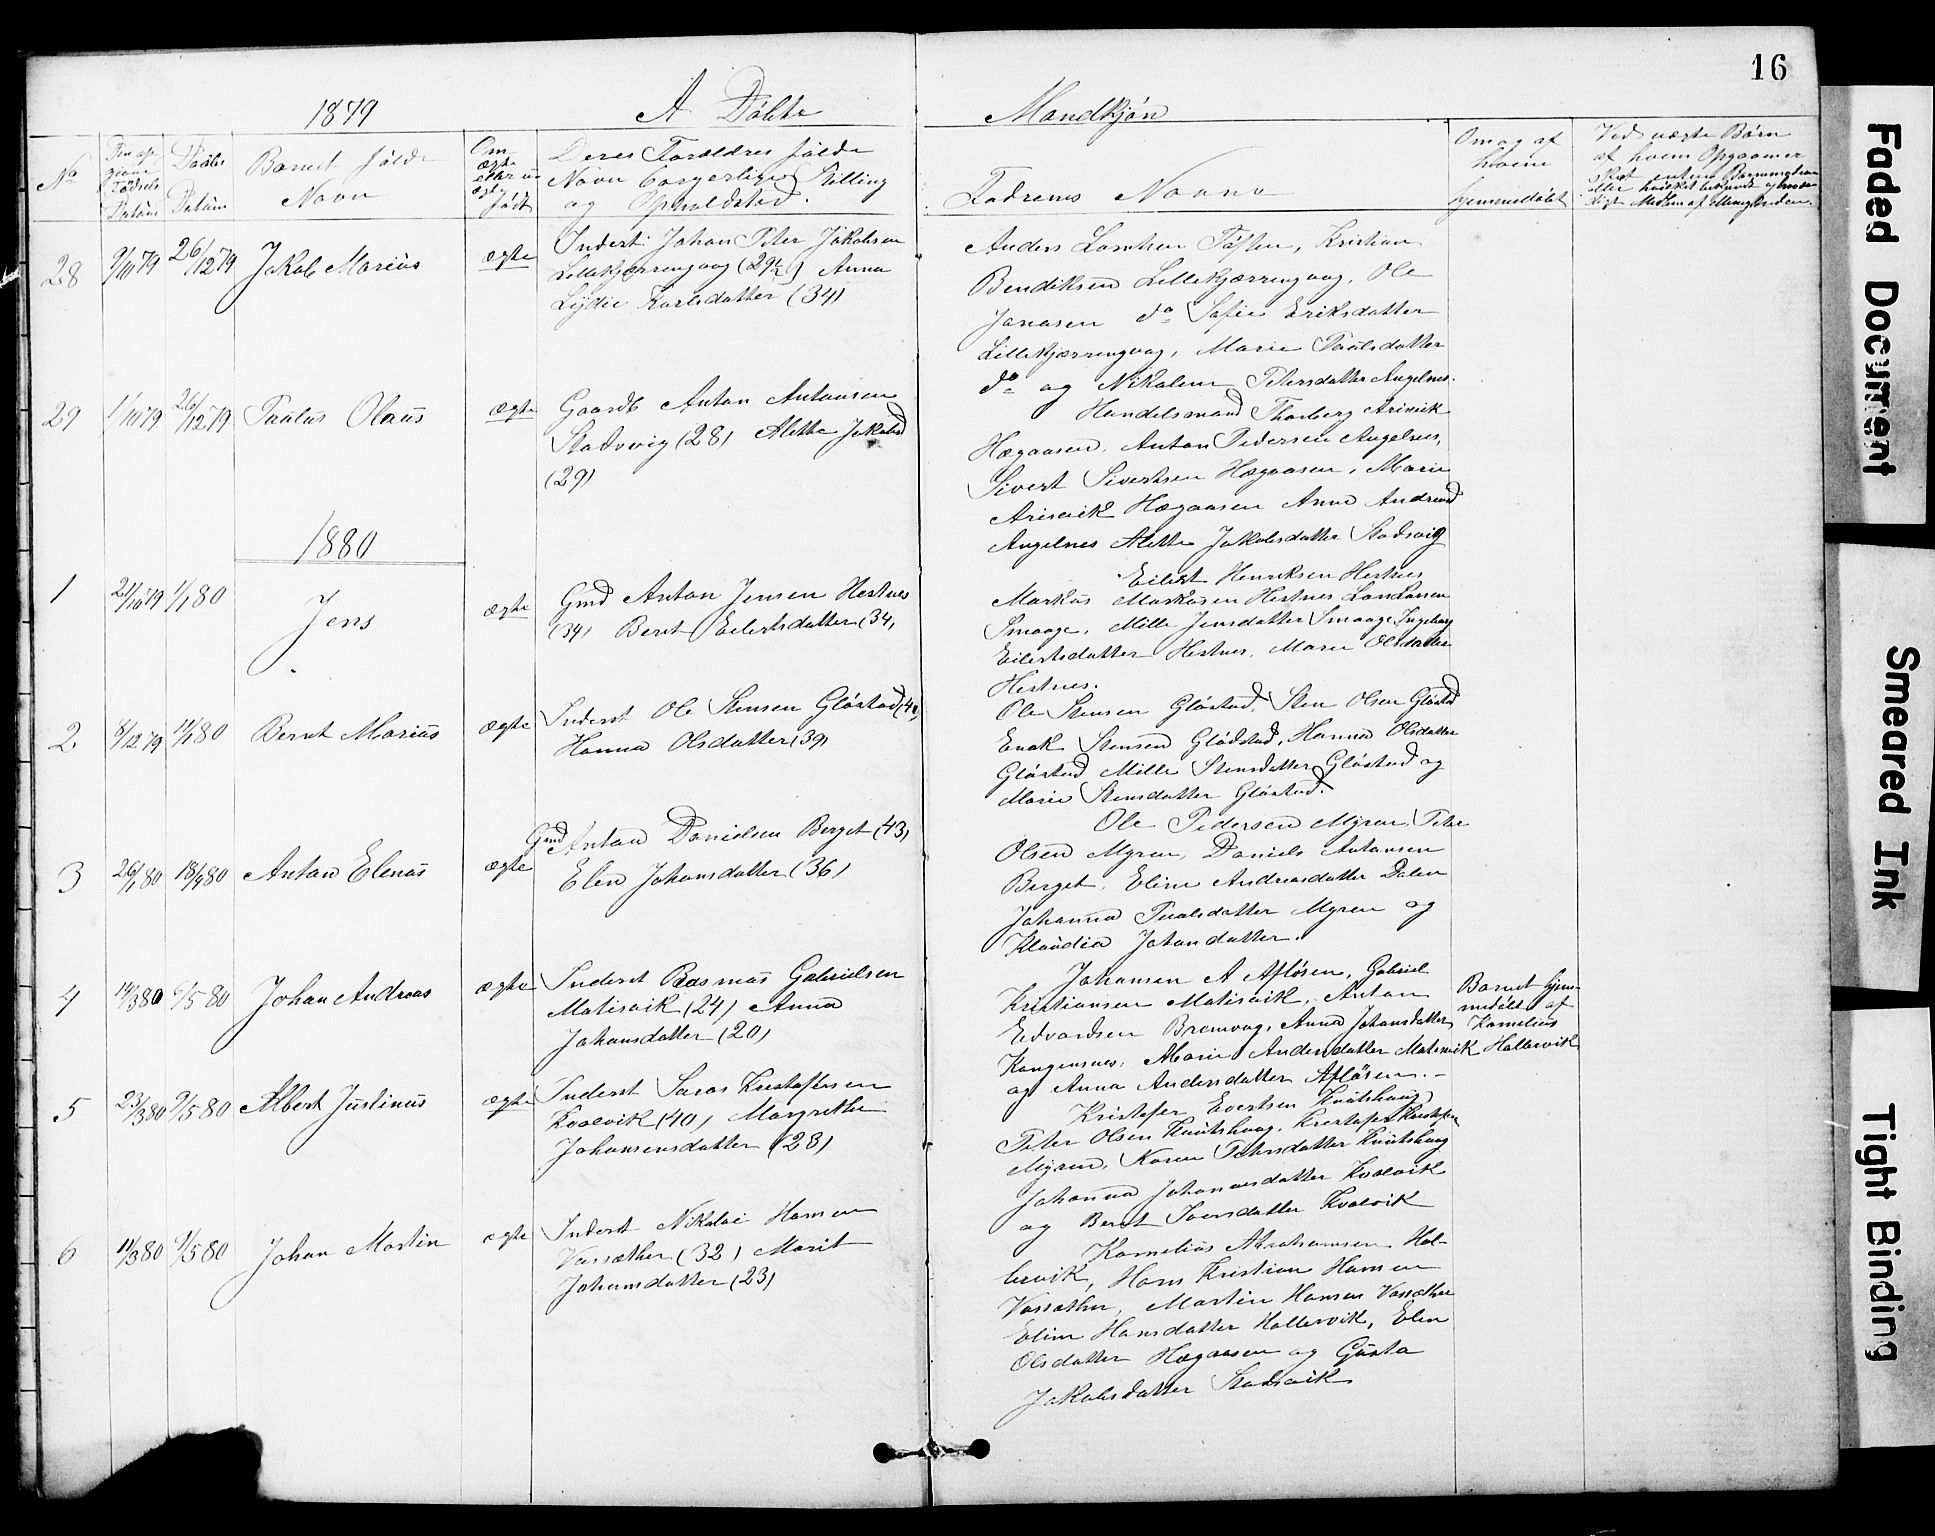 16
1879 A Døbte Mandkjøn
No
Den op-
givne
Fødsels
Datum
Daabs
Datum
Barnet fulde
Navn
Om
ægte
eller u
ægte
født
Deres Forældres fulde
Navn borgerlige Stilling
og Opholdsted.
Fadrenes Navne
Om og af
hvem
hjemmedøbt
Ved uægte Børn
af hvem Opgaven er
28 9/10 79 26/12 79 Jakob Marius ægte
Inderst Johan Peter Jakobsen
Lillekjærringvag (29½) Anna
Lydie Karlsdatter (34)
Anders Tøften, Kristian
Bendiksen Lillekjærringvag, Ole
Jonasen do Sofie Eriksdatter
Lillekjærringvag, Marie Paulsdatter
do og Nikoline Petersdatter Angelnes.
29 1/10 79 26/12 79 Paulus Olaus ægte
Gaardb Anton Antonsen
Stadsvig (28) Alette Jakobsd
(29)
Handelsmand Thorberg Arisvik
Hægaasen, Anton Pedersen Angelnes,
Sivert Sivertsen Hægaasen, Marie
Arisvik Hægaasen Anne Andreasd
Angelnes Alette Jakobsdatter Stadsvig
1880
1 21/10 79 1/1 80 Jens ægte
Gmd Anton Jensen Hestnes
(34) Beret Eilertsdatter (34)
Eilert Henriksen Hestnes
Markus Markusen Hestnes Lars Larsen
Smaage, Mille Jensdatter Smaage, Ingeborg
Eilertsdatter Hestnes, Marie Olsdatter
Hestnes.
2 8/12 79 11/1 80 Bernt Marius ægte
Inderst Ole Stensen Gløstad (40)
Hanna Olsdatter (39)
Ole Stensen Gløstad, Sten Olsen Gløstad
Enok Stensen Glødstad, Hanna Olsdatter
Gløstad Mille Stensdatter Gløstad og
Marie Stensdatter Gløstad.
3 26/1 80 18/4 80 Anton Elenus ægte
Gmd Anton Danielsen Berget (43)
Elen Johansdatter (36)
Ole Pedersen Myren, Peter
Olsen Myren, Daniels Antonsen
Berget, Eline Andreasdatter Dalen
Johanna Paulsdatter Myren og
Klaudia Johandatter.
4 14/3 80 9/5 80 Johan Andreas ægte
Inderst Rasmus Gabrielsen
Matisvik (24) Anna
Johansdatter (20)
Johansen A Afløsen, Gabriel
Kristiansen Matisvik, Anton
Edvardsen Bremvag, Anna Johansdatter
Kongensnes, Marie Andersdatter Matisvik
og Anna Andersdatter Afløsen.
Barnet hjem-
medøbt af
Kornelius
Hallervik
5 23/3 80 9/5 80 Albert Justinus ægte
Inderst Kristofersen
Kvalvik (40) Margrethe
Johannesdatter (28)
Kristofer Evertsen Knutshaug
Peter Olsen Knutshaug, Kristofer Kristofersen
Myren, Karen Petersdatter Knutshaug
Johanna Johannesdatter Kvalvik
og Beret Iversdatter Kvalvik
6 11/3 80 9/5 80 Johan Martin ægte
Inderst Nikolai Hansen
Vassæther (32) Marit
Johansdatter (23)
Kornelius Abrahamsen Hal-
lervik, Hans Kristian Hansen
Vassæther, Martin Hansen Vassæther
Eline Hansdatter Hallervik, Elen
Olsdatter Hægaasen og Gusta
Jakobsdatter Stadsvik
Faded Document
Smeared Ink
Tight Binding